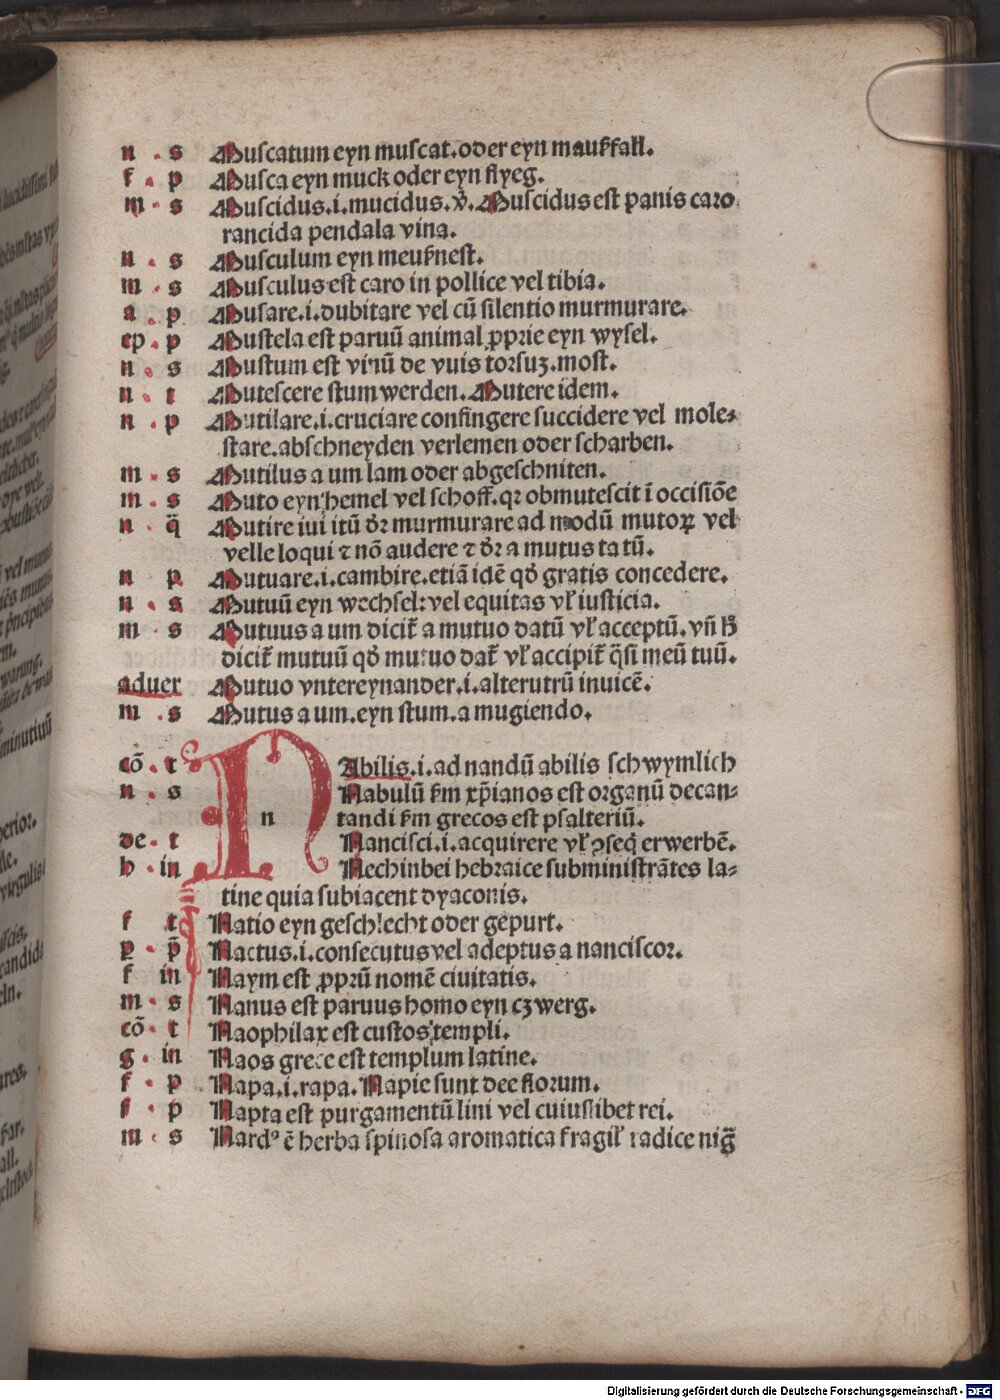 n . s Muscatum eyn muscat. oder eyn maußfall.
f . p Musca eyn muck oder eyn flyeg.
m . s Muscidus .i. mucidus. ỽ. Muscidus est panis caro
rancida pendala vina.
n . s Musculum eyn meußnest.
m . s Musculus est caro in pollice vel tibia.
a . p Musare .i. dubitare vel cū silentio murmurare.
ep . p Mustela est paruū animal ꝓprie eyn wysel.
n . s Mustum est vinū de vuis torsuꝫ. most.
n . t Mutescere stum werden. Mutere idem.
n . p Mutilare .i. cruciare confingere succidere vel mole⸗
stare. abschneyden verlemen oder scharben.
m . s Mutilus a um lam oder abgeschniten.
m . s Muto eyn hemel vel schoff. qꝛ obmutescit ī occisiōe
n . q̄ Mutire iui itū dꝛ murmurare ad modū mutoꝝ vel
velle loqui ⁊ nō audere ⁊ dꝛ a mutus ta tū.
n p Mutuare .i. cambire. etiā idē qd̕ gratis concedere.
n . s Mutuū eyn wechsel: vel equitas vl̕ iusticia.
m . s Mutuus a um dicit̕ a mutuo datū vl̕ acceptū. vn̄ hͦ
dicit̕ mutuū qd̕ mutuo dat̕ vl̕ accipit̕ q̄si meū tuū.
aduer Mutuo vntereynander .i. alterutrū inuicē.
m . s Mutus a um. eyn stum. a mugiendo.
cō . t NAbilis .i. ad nandū abilis schwymlich
n . s Nabulū ẜm xp̄ianos est organū decan⸗
n tandi ẜm grecos est psalteriū.
de . t Nancisci .i. acquirere vl̕ ꝯseq̄ erwerbē.
h . in Nechinbei hebraice subministrātes la⸗
tine quia subiacent dyaconis.
f t Natio eyn geschlecht oder gepurt.
p . p̄ Nactus .i. consecutus vel adeptus a nanciscor.
f in Naym est ꝓprū nomē ciuitatis.
m . s Nanus est paruus homo eyn czwerg.
cō . t Naophilax est custos templi.
g . in Naos grece est templum latine.
f . p Napa .i. rapa. Napie sunt dee florum.
f . p Napta est purgamentū lini vel cuiuslibet rei.
m . s Nardꝰ ē herba spinosa aromatica fragil̕ radice niḡ
Digitalisierung gefördert durch die Deutsche Forschungsgemeinschaft - DFG